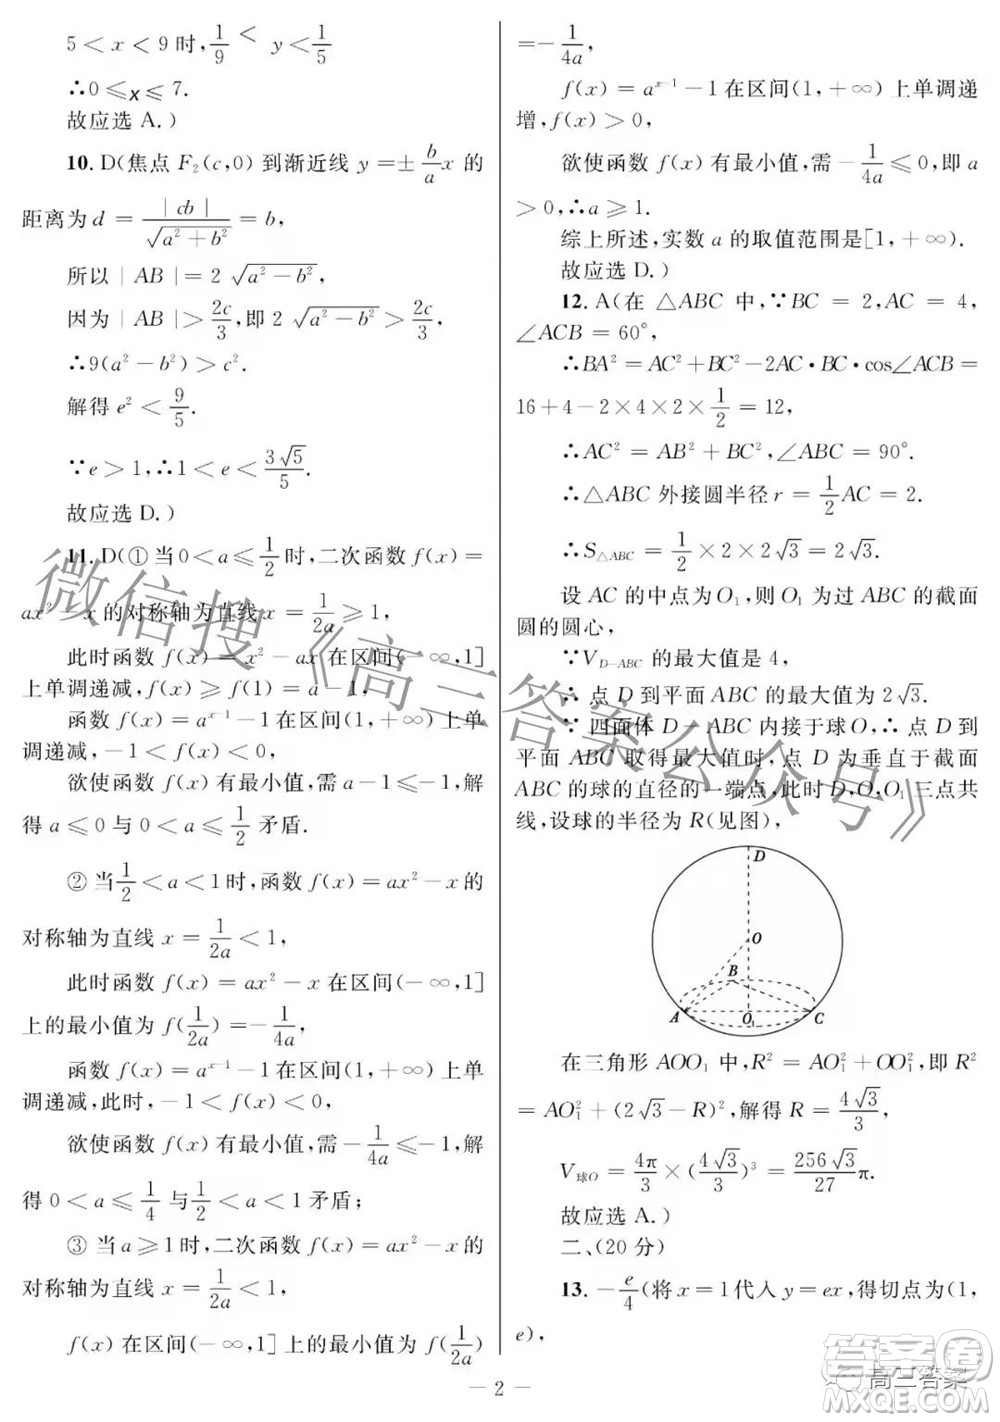 5 < x < 9 时, 1/9 < y < 1/5
∴0 ⩽ x ⩽ 7.
故应选 A.)
10. D(焦点 F₂(c,0) 到渐近线 y = ± b/a x 的
距离为 d = |cb| / √(a² + b²) = b,
所以 | AB | = 2 √(a² − b²),
因为 | AB | > 2c/3, 即 2 √(a² − b²) > 2c/3,
∴9(a² − b²) > c².
解得 e² < 9/5.
∵e > 1, ∴1 < e < 3√5/5.
故应选 D.)
11. D(① 当 0 < a ⩽ 1/2 时, 二次函数 f(x) =
ax² − x 的对称轴为直线 x = 1/2a ⩾ 1,
此时函数 f(x) = x² − ax 在区间(− ∞,1]
上单调递减, f(x) ⩾ f(1) = a − 1,
函数 f(x) = aˣ⁻¹ − 1 在区间(1, + ∞) 上单
调递减, − 1 < f(x) < 0,
欲使函数 f(x) 有最小值, 需 a − 1 ⩽− 1, 解
得 a ⩽ 0 与 0 < a ⩽ 1/2 矛盾.
② 当 1/2 < a < 1 时, 函数 f(x) = ax² − x 的
对称轴为直线 x = 1/2a < 1,
此时函数 f(x) = ax² − x 在区间(− ∞,1]
上的最小值为 f(1/2a) =− 1/4a,
函数 f(x) = aˣ⁻¹ − 1 在区间(1, + ∞) 上单
调递减, 此时, − 1 < f(x) < 0,
欲使函数 f(x) 有最小值, 需− 1/4a ⩽− 1, 解
得 0 < a ⩽ 1/4 与 1/2 < a < 1 矛盾;
③ 当 a ⩾ 1 时, 二次函数 f(x) = ax² − x 的
对称轴为直线 x = 1/2a < 1,
f(x) 在区间(− ∞,1] 上的最小值为 f(1/2a)
=− 1/4a,
f(x) = aˣ⁻¹ − 1 在区间(1, + ∞) 上单调递
增, f(x) > 0,
欲使函数 f(x) 有最小值, 需 − 1/4a ⩽ 0, 即 a
> 0, ∴a ⩾ 1.
综上所述, 实数 a 的取值范围是[1, + ∞).
故应选 D.)
12. A(在 △ABC 中, ∵BC = 2, AC = 4,
∠ACB = 60°,
∴BA² = AC² + BC² − 2AC • BC • cos∠ACB =
16 + 4 − 2 × 4 × 2 × 1/2 = 12,
∴AC² = AB² + BC², ∠ABC = 90°.
∴△ABC 外接圆半径 r = 1/2 AC = 2.
∴S△ABC = 1/2 × 2 × 2 √3 = 2√3.
设 AC 的中点为 O₁, 则 O₁ 为过 ABC 的截面
圆的圆心,
∵V_D−ABC 的最大值是 4,
∴ 点 D 到平面 ABC 的最大值为 2 √3.
∵ 四面体 D − ABC 内接于球 O, ∴ 点 D 到
平面 ABC 取得最大值时, 点 D 为垂直于截面
ABC 的球的直径的一端点, 此时 D, O, O₁ 三点共
线, 设球的半径为 R(见图),
D
O
B
A
O₁
C
在三角形 AOO₁ 中, R² = AO₁² + OO₁², 即 R²
= AO₁² + (2 √3 − R)², 解得 R = 4√3/3,
V球O = 4π/3 × (4√3/3)³ = 256√3/27 π.
故应选 A.)
二、(20 分)
13. − e/4 (将 x = 1 代入 y = ex, 得切点为(1,
e),
— 2 —
微信搜《高三答案公众号》
答案圈
高三答案
MXQE.COM